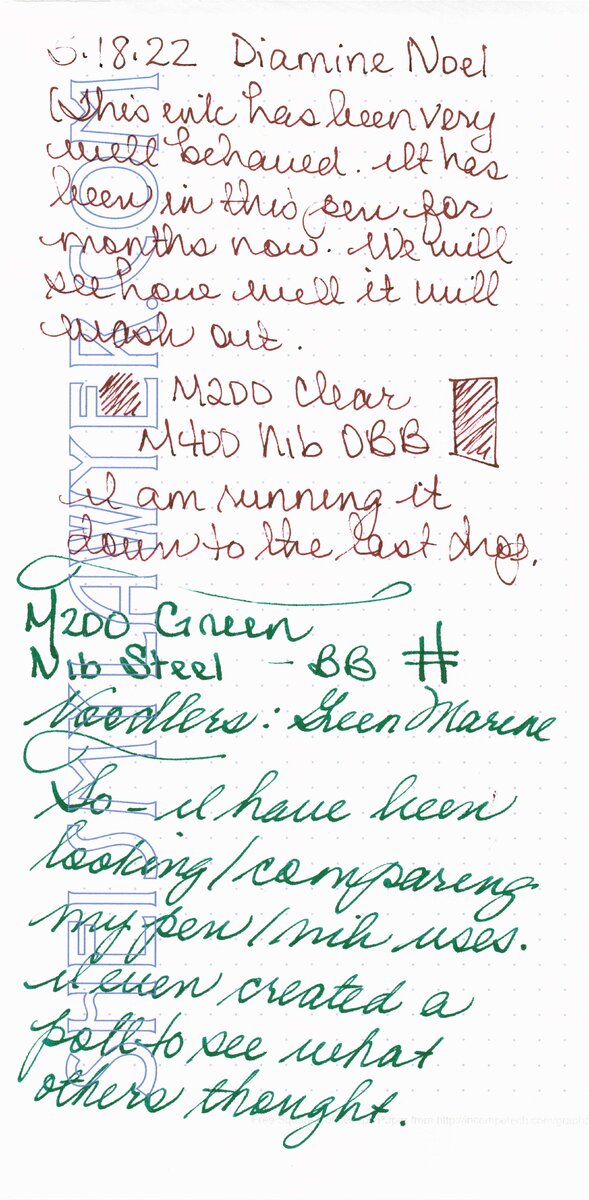 5.18.22 Diamine Noel
This ink has been very
well behaved. It has
been in this pen for
months now. We will
see how well it will
wash out.
M200 Clear
M400 Nib OBB
I am running it
down to the last drop.
M200 Green
Nib Steel - BB #
Noodlers: Green Marine
So - I have been
looking/comparing
my pen/nib uses.
I even created a
poll to see what
others thought.
SHEISMYLAWYER.COM